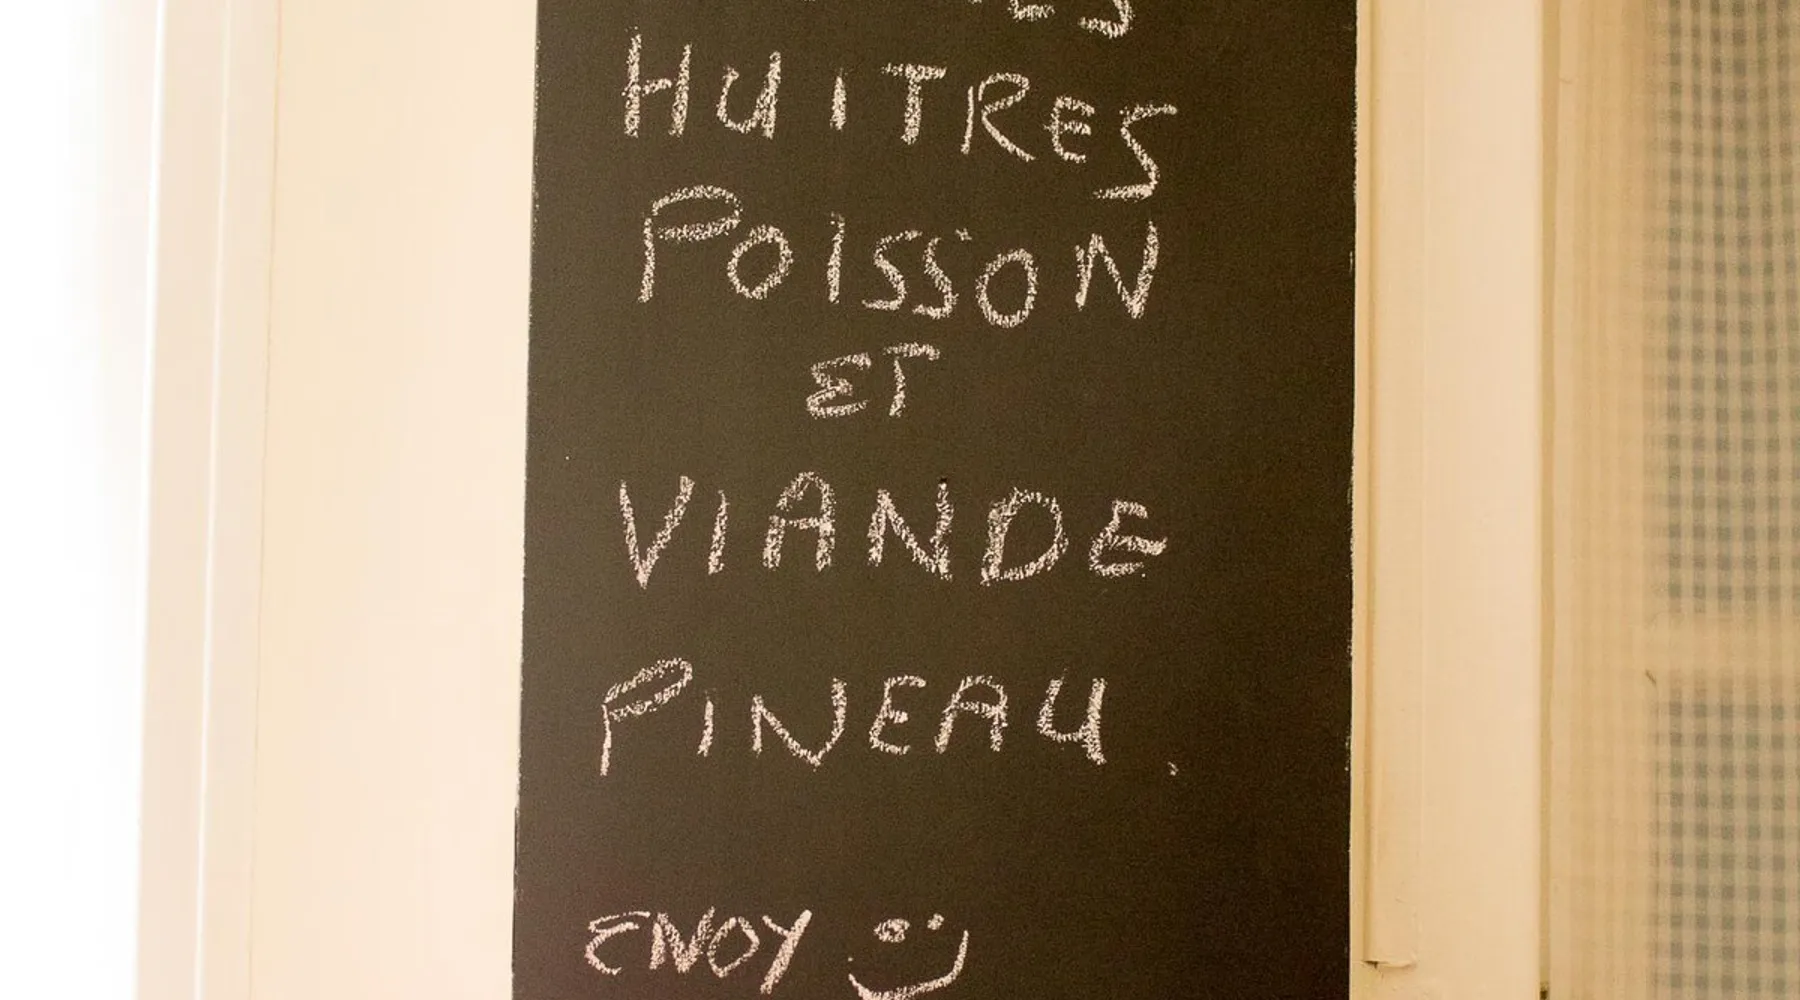 HUITRES
POISSON
ET
VIANDE
PINEAU.
ENOY